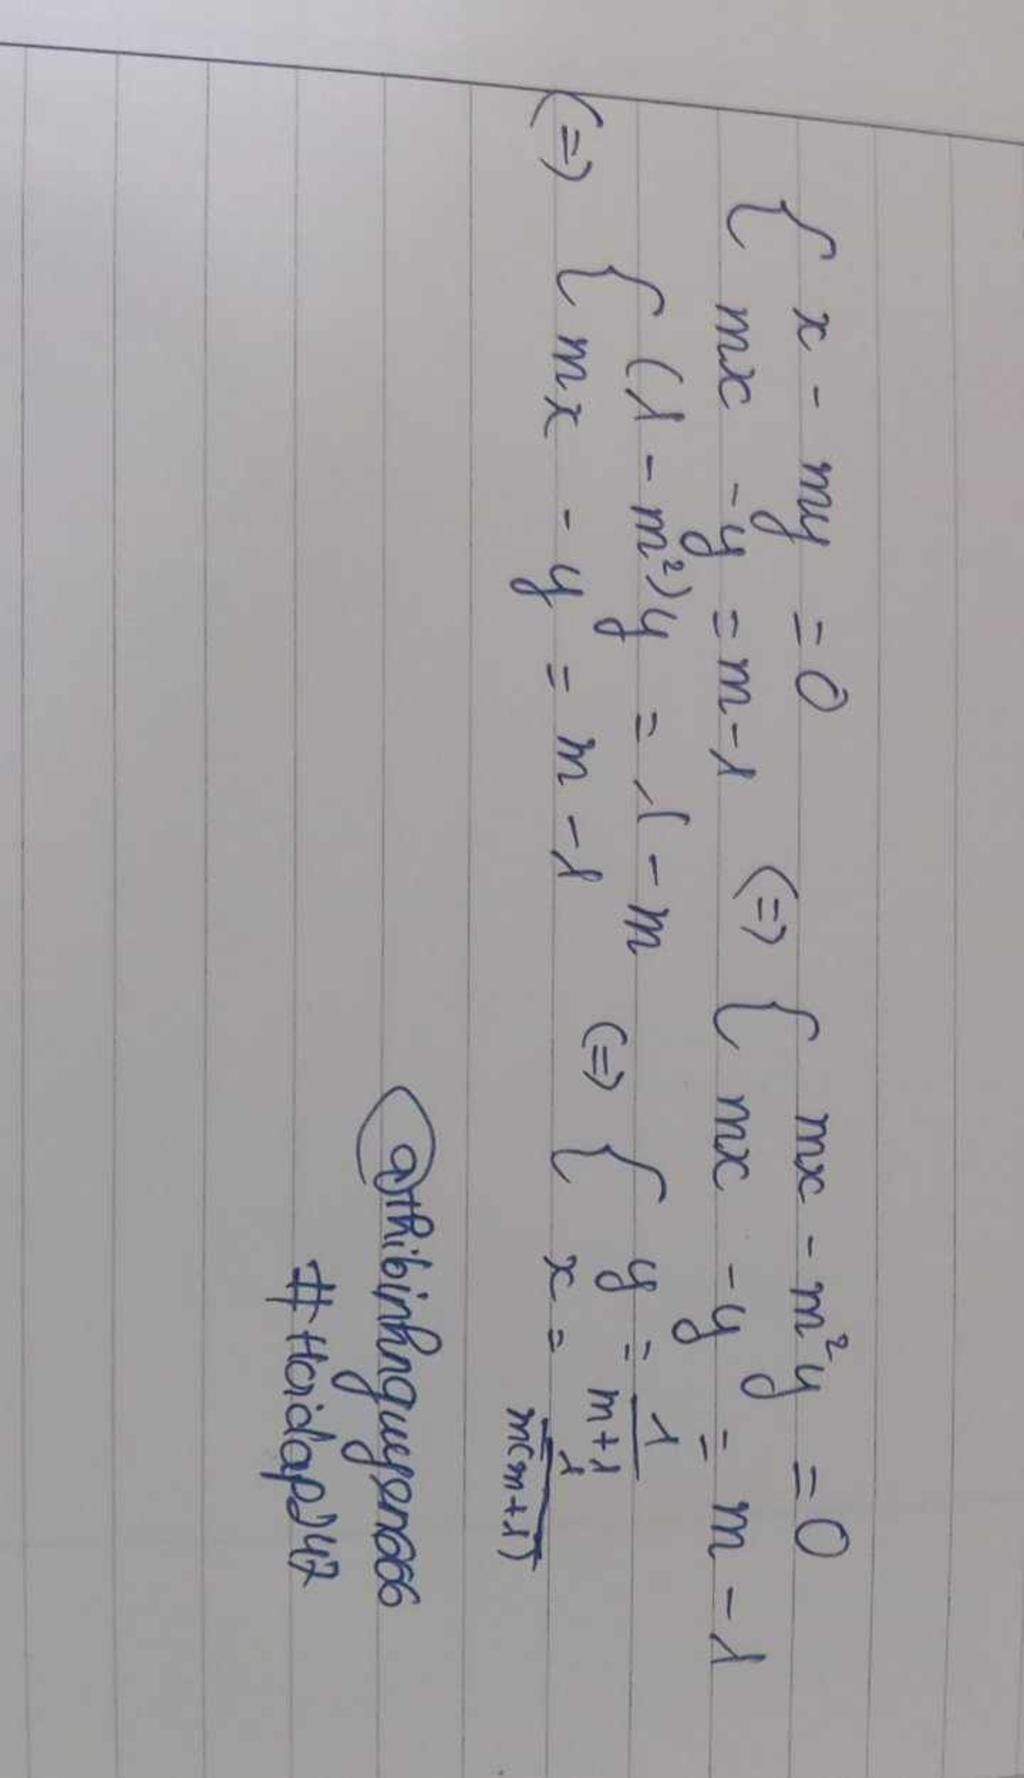 { x - my = 0
{ mx - y = m - 1 (=) { mx - m²y = 0
{ mx - y = m - 1
(=) { (1 - m²)y = 1 - m
{ mx - y = m - 1 (=) { y = 1/(m+1)
{ x = 1/(m(m+1))
@thibinhnguyen066
#Hoidap247